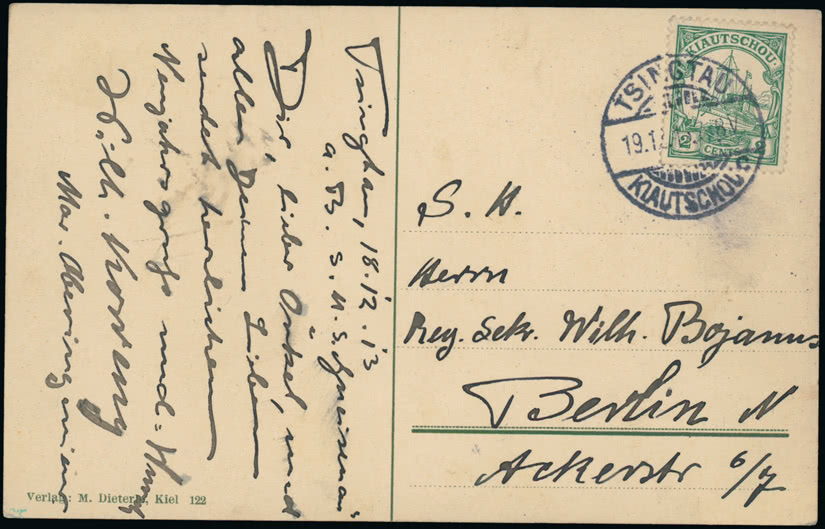 Tsingtau, 18.12.13
a. B. S. M. S. Gneisenau
Dir, lieber Onkel, und
allen Deinen Lieben
sendet herzlichen
Neujahrsgruß und =
Wilh.
Mar. Oberingenieur
Verlag: M. Dieterle, Kiel 122
KIAUTSCHOU
2 CENTS 2
TSINGTAU
19.12
KIAUTSCHOU
S. H.
Herrn
Reg. Sekr. Wilh. Bojanus
Berlin N
Ackerstr 6/7